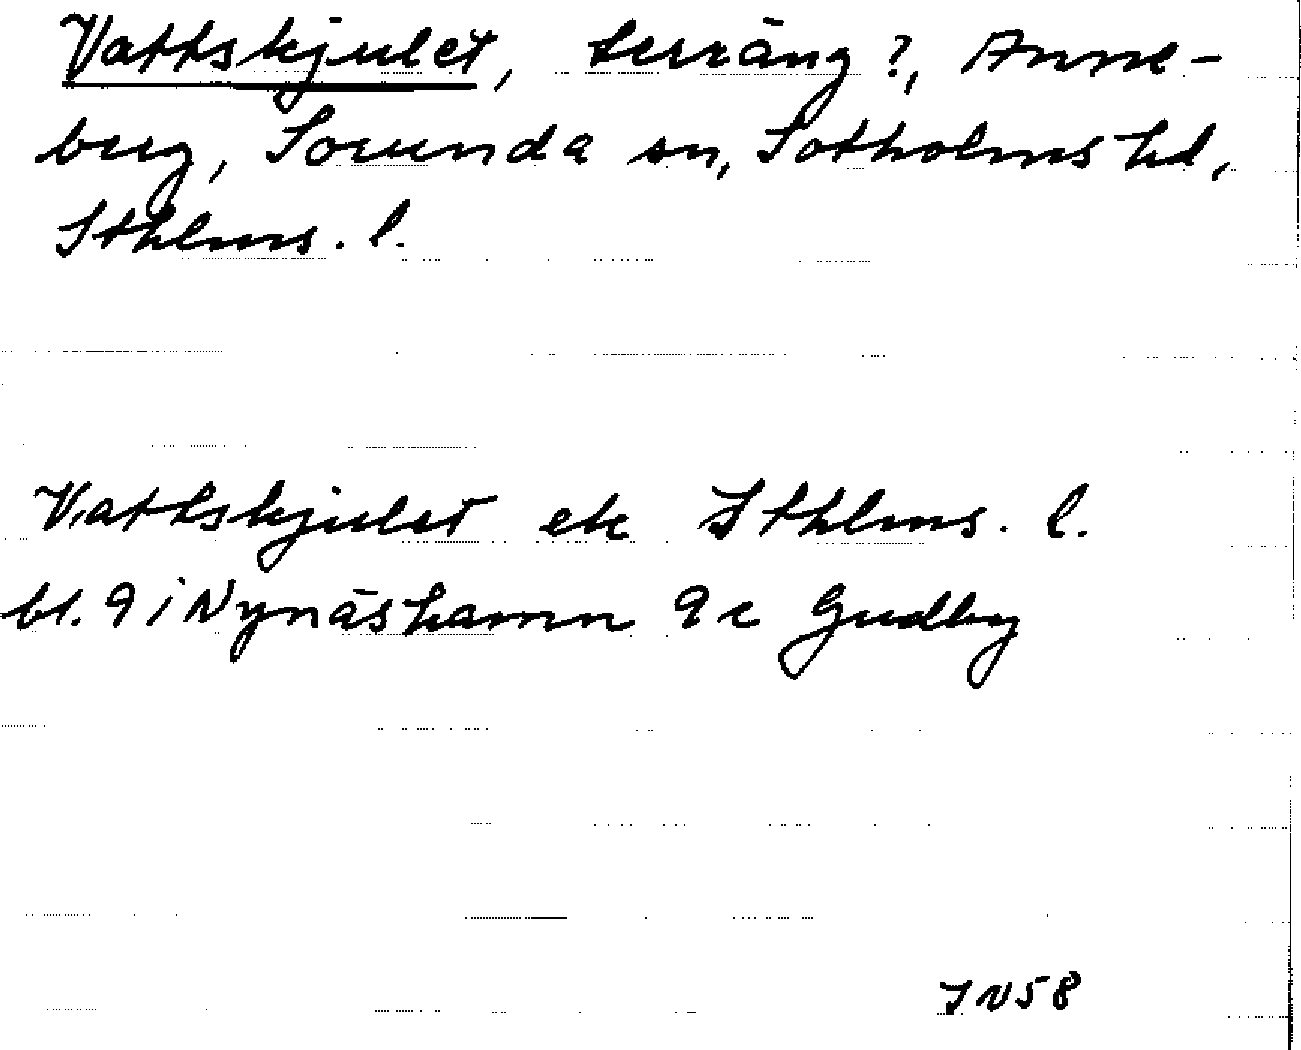 Vattskjulet, terräng?, Anne-
berg, Sorunda sn, Sotholms hd,
Sthlms. l.
Vattskjulet ek Sthlms. l.
bl. 9 i Nynäshamn 9 c Gudby
JN58